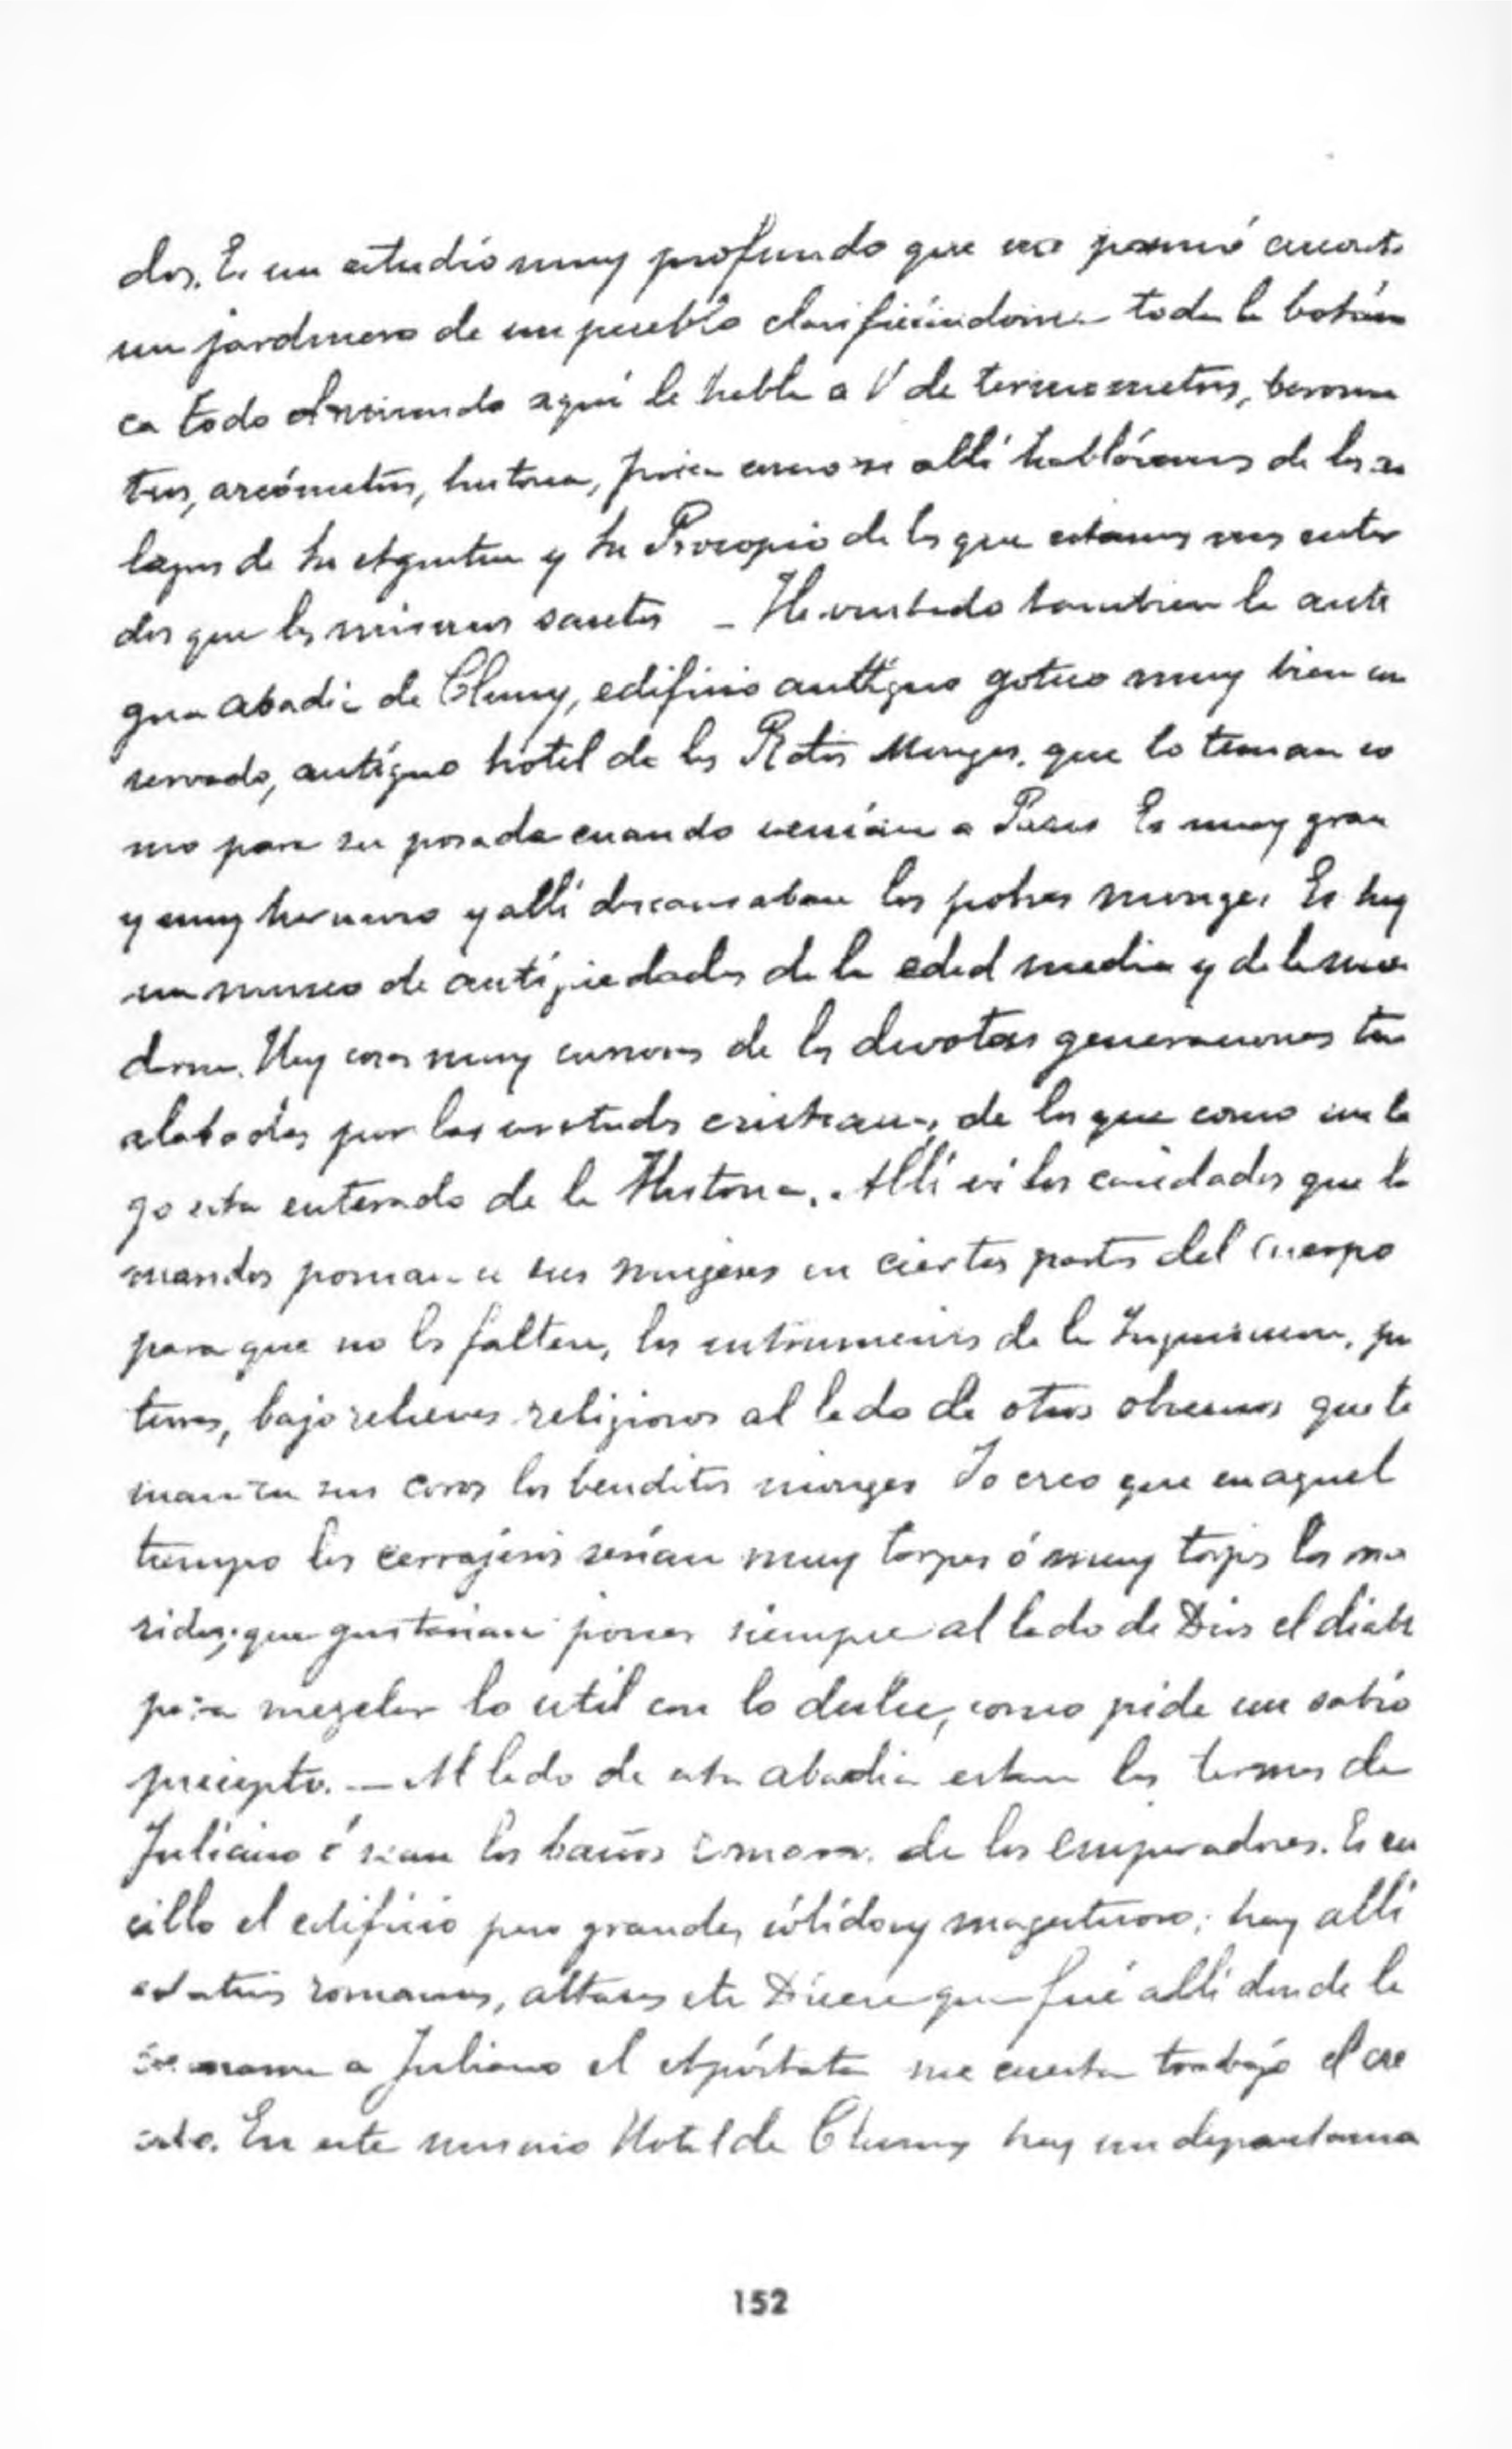 dos. Es un estudio muy profundo que me pasmó cuando
un jardinero de un pueblo clasificándome toda la botáni
ca todo el mundo aquí le habla a V de termometros, barome
tros, areómetros, historia, física como si allí habláramos de los mi
lagros de Sn Agustin y Sn Procopio de los que estamos mas entera
dos que los mismos santos _ He visitado tambien la anti
gua abadia de Cluny, edificio antíguo gotico muy bien con
servado, antíguo hotel de los Monges, que lo tenian co
mo para su posada cuando venían a Paris Es muy gran
y muy hermoso y allí descansaban los pobres monges Es hoy
un museo de antigüedades de la edad media y de la mo
derna. Hay cosas muy curiosas de las devotas generaciones tan
alabadas por las virtudes cristianas, de las que como
esta enterado de la Historia. Allí vi los candados que los
maridos ponian a sus mugeres en ciertas partes del cuerpo
para que no les falten, los instrumentos de la Inquisicion,
bajo relieves religiosos al lado de otros obscenos que te
nian en sus coros los benditos monges Yo creo que en aquel
tiempo los cerrajeros serían muy torpes ó muy torpes los ma
ridos; que gustarian poner siempre al lado de Dios el diablo
para mezclar lo util con lo dulce, como pide un sabio
precepto. — Al lado de esta abadia estan las termas de
Juliano ó sean los baños de los emperadores. Es sen
cillo el edificio pero grande, sólido y magestuoso; hay allí
estatuas romanas, altares etc Dicen que fué allí donde le
a Juliano el Apóstata me cuesta trabajo el cre
erlo. En este mismo Hotel de Cluny hay un departamen
152